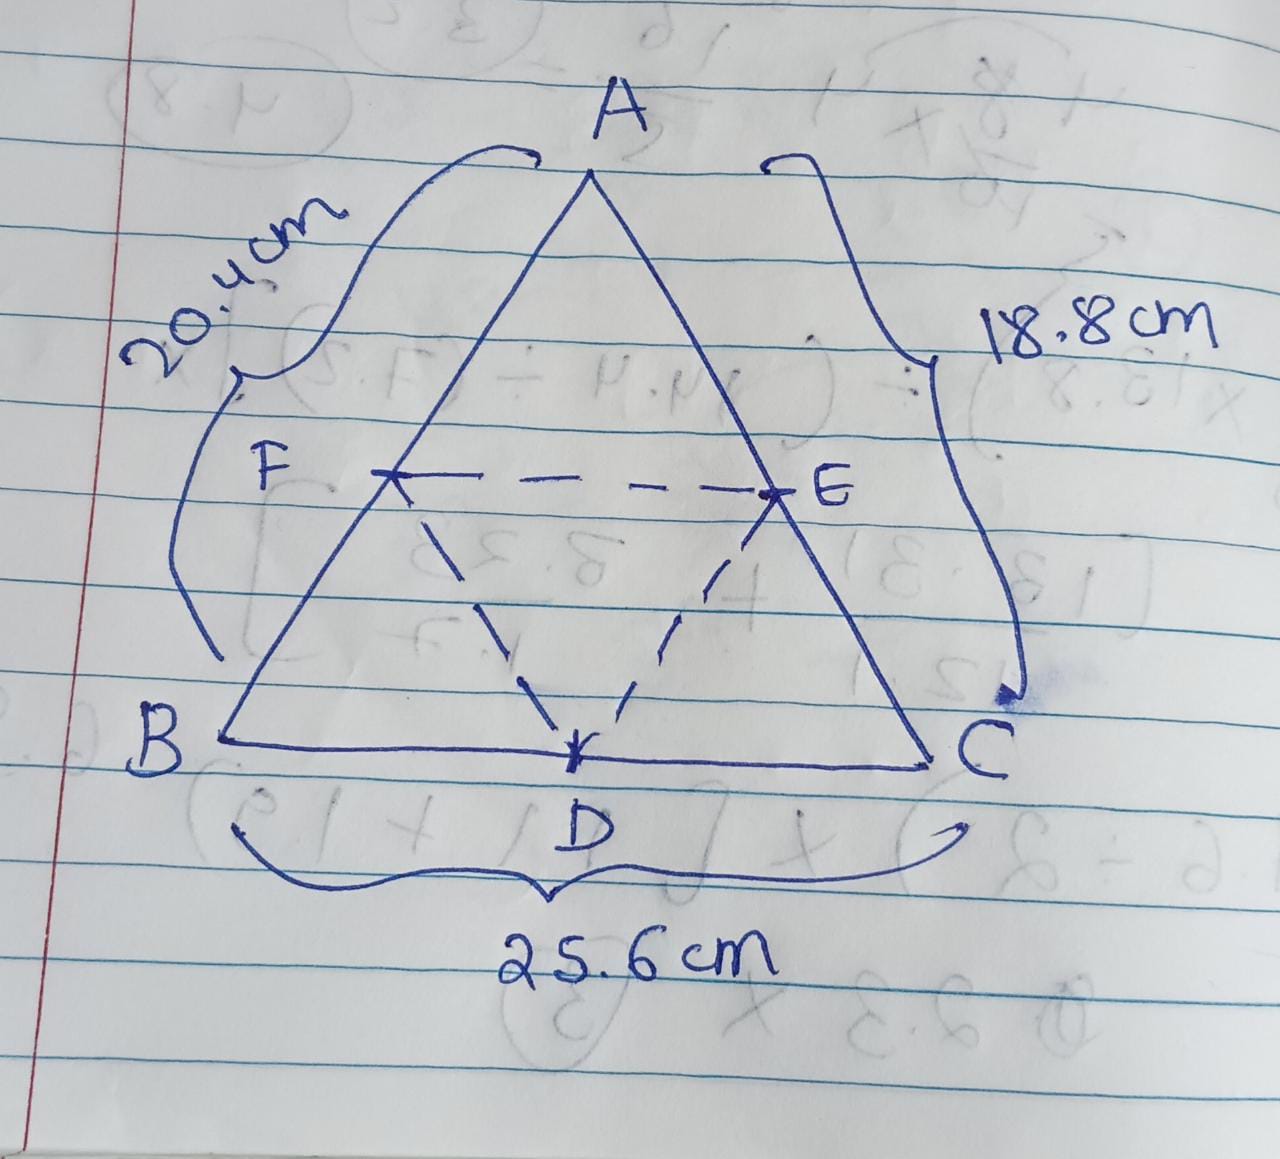 A
20.4cm
18.8cm
F
E
B
C
D
25.6cm